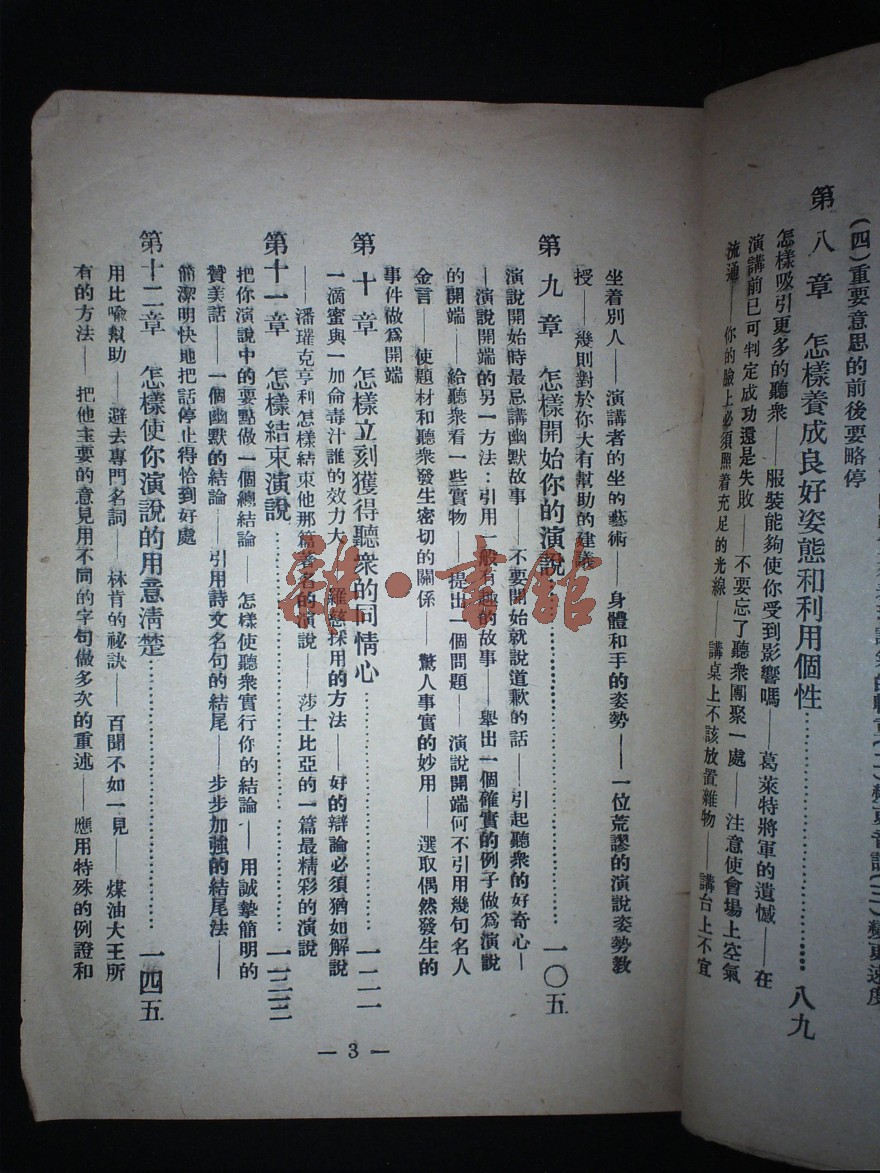 (四)重要意思的前後要略停
第八章 怎樣養成良好姿態和利用個性……八九
怎樣吸引更多的聽衆——服裝能夠使你受到影響嗎——葛萊特將軍的遺憾——在
演講前已可判定成功還是失敗——不要忘了聽衆團聚一處——注意使會場上空氣
流通——你的臉上必須照着充足的光線——講桌上不該放置雜物——講台上不宜
坐着別人——演講者的坐的藝術——身體和手的姿勢——一位荒謬的演說姿勢教
授——幾則對於你大有幫助的建議
第九章 怎樣開始你的演說……一〇五
演說開始時最忌講幽默故事——不要開始就說道歉的話——引起聽衆的好奇心—
—演說開端的另一方法:引用一般有趣的故事——舉出一個確實的例子做爲演說
的開端——給聽衆看一些實物——提出一個問題——演說開端何不引用幾句名人
金言——使題材和聽衆發生密切的關係——驚人事實的妙用——選取偶然發生的
事件做爲開端
第十章 怎樣立刻獲得聽衆的同情心……一二一
一滴蜜與一加侖毒汁誰的效力大——羅慈採用的方法——好的辯論必須猶如解說
——潘璀克亨利怎樣結束他那篇著名的演說——莎士比亞的一篇最精彩的演說
第十一章 怎樣結束演說……一三三
把你演說中的要點做一個總結論——怎樣使聽衆實行你的結論——用誠摯簡明的
贊美話——一個幽默的結論——引用詩文名句的結尾——步步加強的結尾法——
簡潔明快地把話停止得恰到好處
第十二章 怎樣使你演說的用意淸楚……一四五
用比喩幫助——避去專門名詞——林肯的祕訣——百聞不如一見——煤油大王所
有的方法——把他主要的意見用不同的字句做多次的重述——應用特殊的例證和
— 3 —
雜·書館